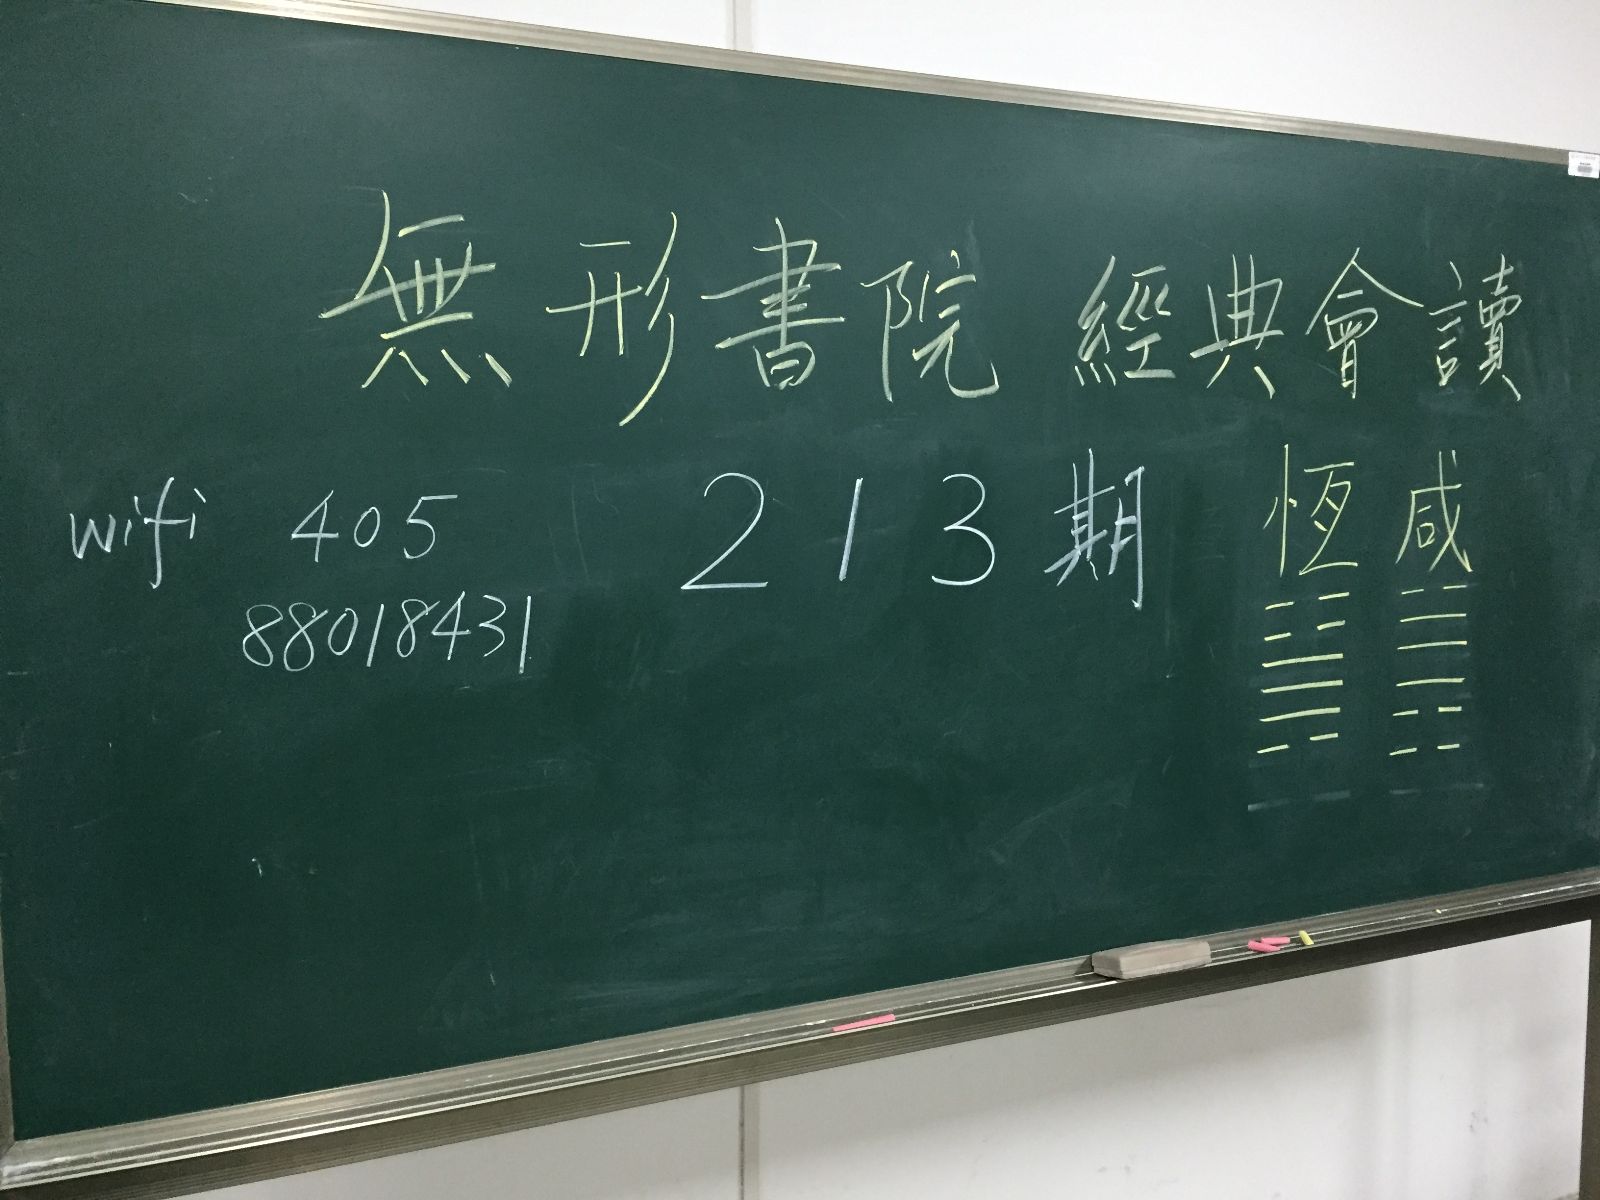 無形書院 經典會讀
wifi 405 213期 恆 咸
88018431